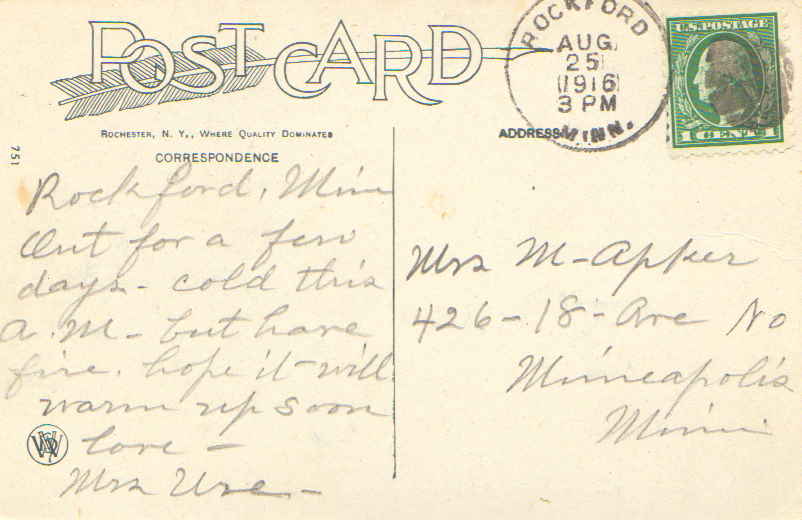 POST CARD
ROCKFORD
AUG
25
1916
3 PM
MINN.
U.S. POSTAGE
1 CENT 1
ROCHESTER, N. Y., WHERE QUALITY DOMINATES
ADDRESS
CORRESPONDENCE
751
Rockford, Minn
Out for a few
days - cold this
A. M - but have
fire. hope it will
warm up soon
love -
Mrs Ure -
Mrs M - Apker
426 - 18 - Ave No
Minneapolis
Minn